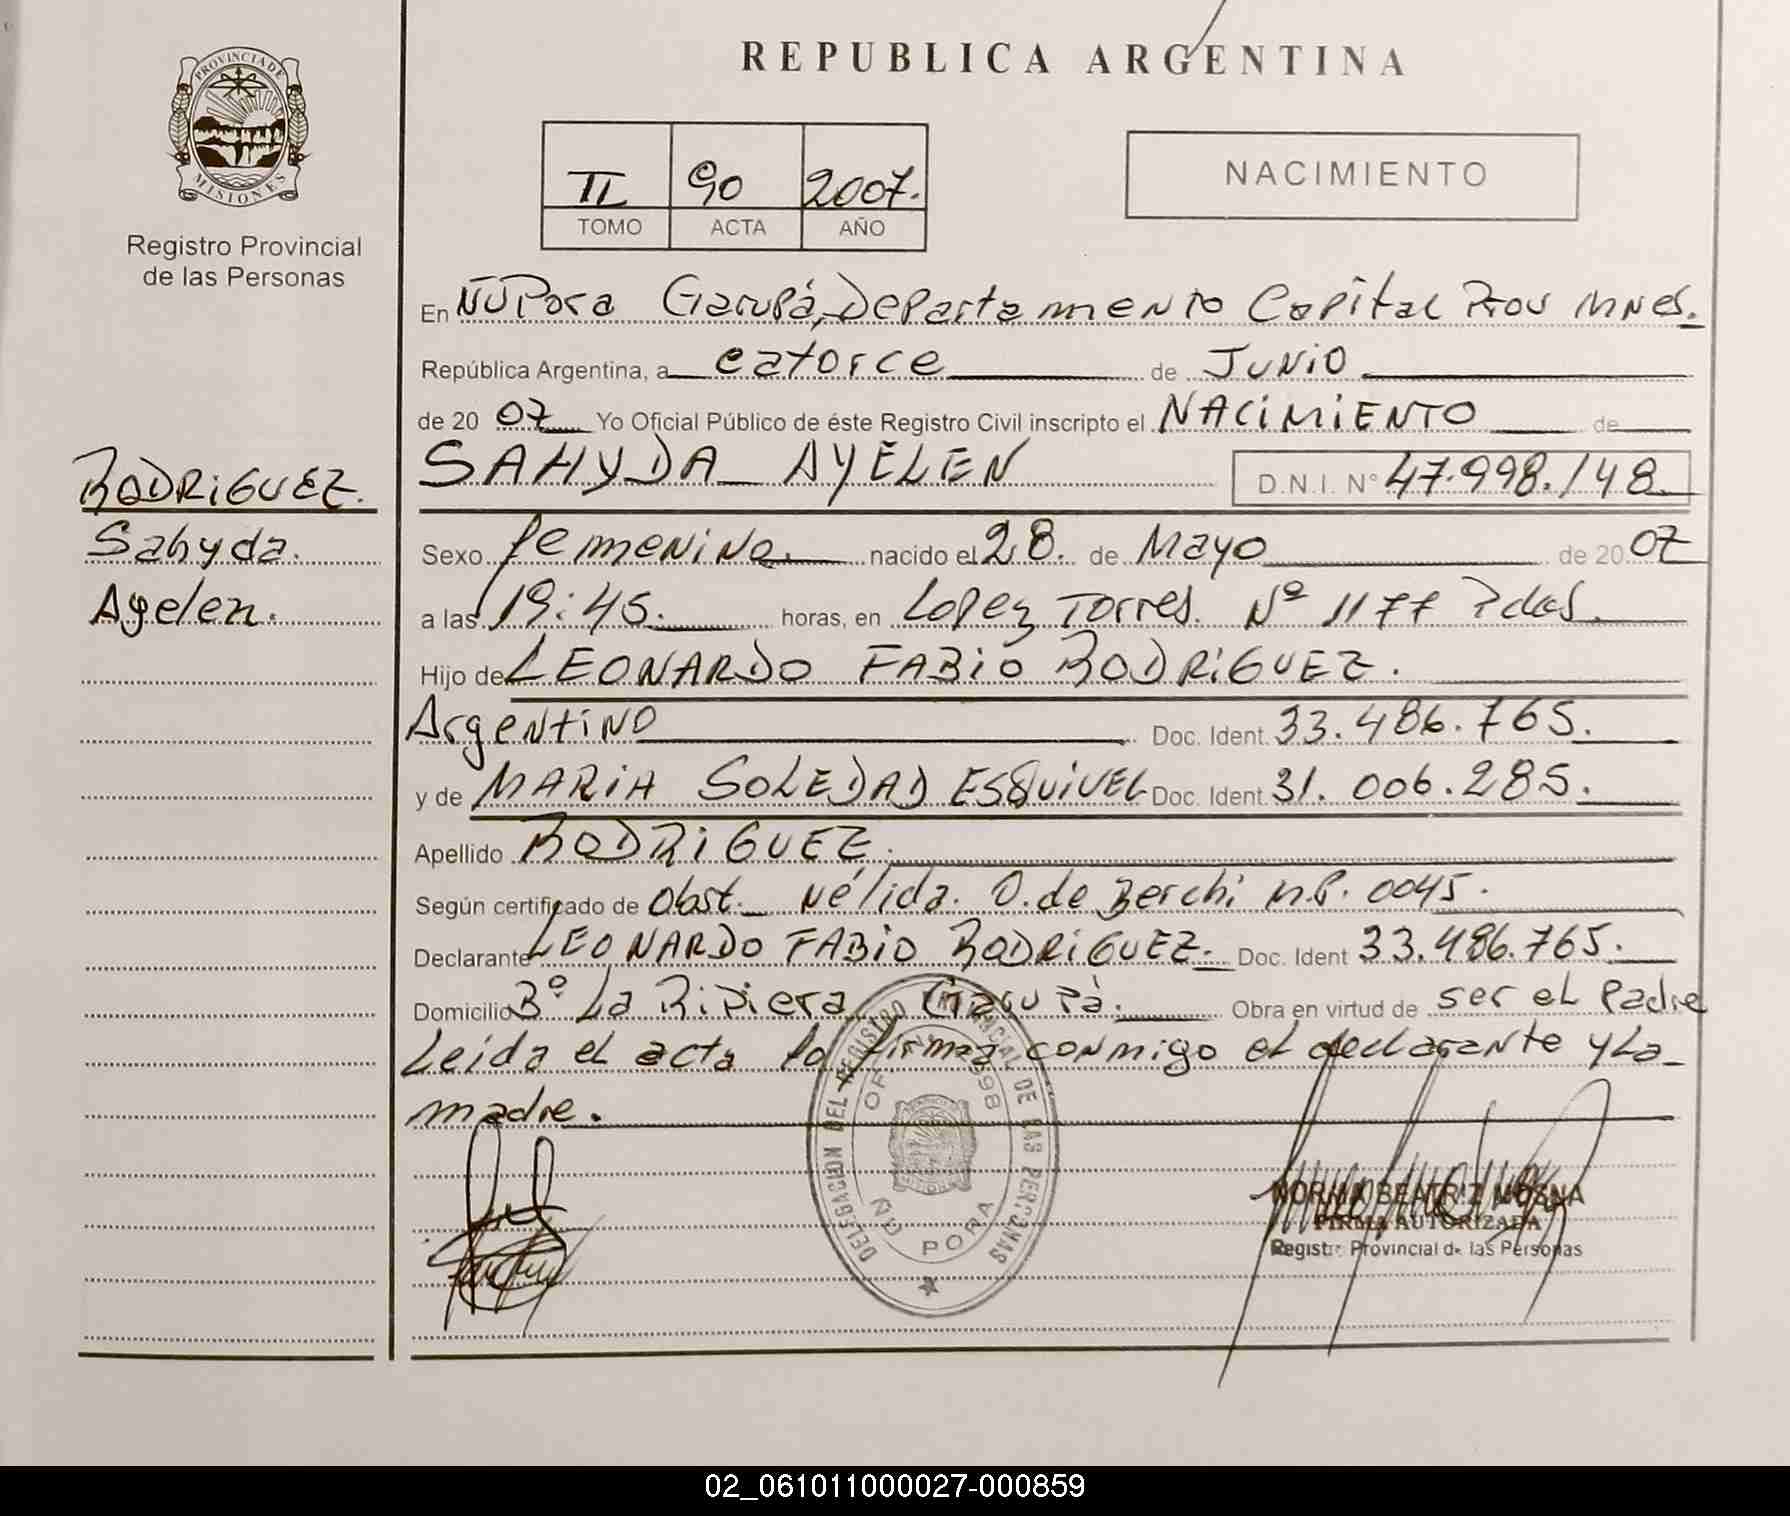 REPUBLICA ARGENTINA
PROVINCIA DE
MISIONES
Registro Provincial
de las Personas
II 90 2007.
TOMO ACTA AÑO
NACIMIENTO
En ÑU Pora Garupá, Departamento Capital Prov Mnes.
República Argentina, a catorce de Junio
de 20 07 Yo Oficial Público de éste Registro Civil inscripto el NACIMIENTO de
SAHYDA AYELEN D.N.I. N° 47.998.148.
RODRIGUEZ.
Sahyda.
Ayelen.
Sexo femenino. nacido el 28. de Mayo de 20 07
a las 19:45. horas, en Lopez Torres. Nº 1177 Pdas.
Hijo de LEONARDO FABIO RODRIGUEZ.
Argentino Doc. Ident. 33.486.765.
y de MARIA SOLEDAD ESQUIVEL Doc. Ident. 31.006.285.
Apellido RODRIGUEZ.
Según certificado de Obst. Nélida. O. de Berchi M.P. 0045.
Declarante LEONARDO FABIO RODRIGUEZ. Doc. Ident 33.486.765.
Domicilio Bº La Riviera Garupà. Obra en virtud de ser el Padre
Leida el acta la firman conmigo el declarante y La
madre.
DELEGACION DEL REGISTRO PROVINCIAL DE LAS PERSONAS
ÑU PORA
NORMA BEATRIZ MOSNA
FIRMA AUTORIZADA
Registro Provincial de las Personas
02_061011000027-000859